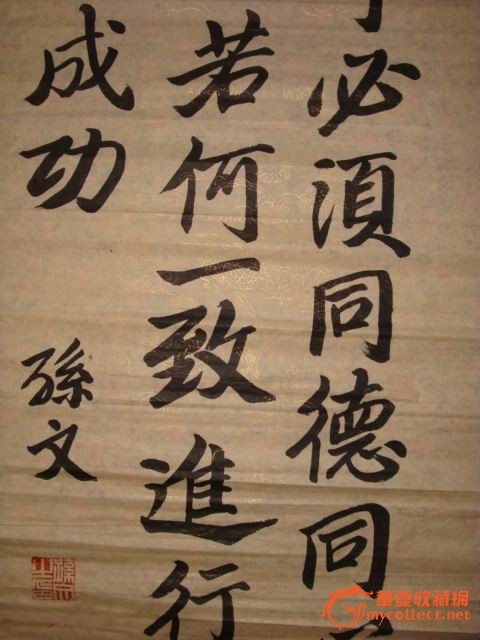 必須同德同
若何一致進行
成功
孫文
孫文之印
華夏收藏網
mycollect.net